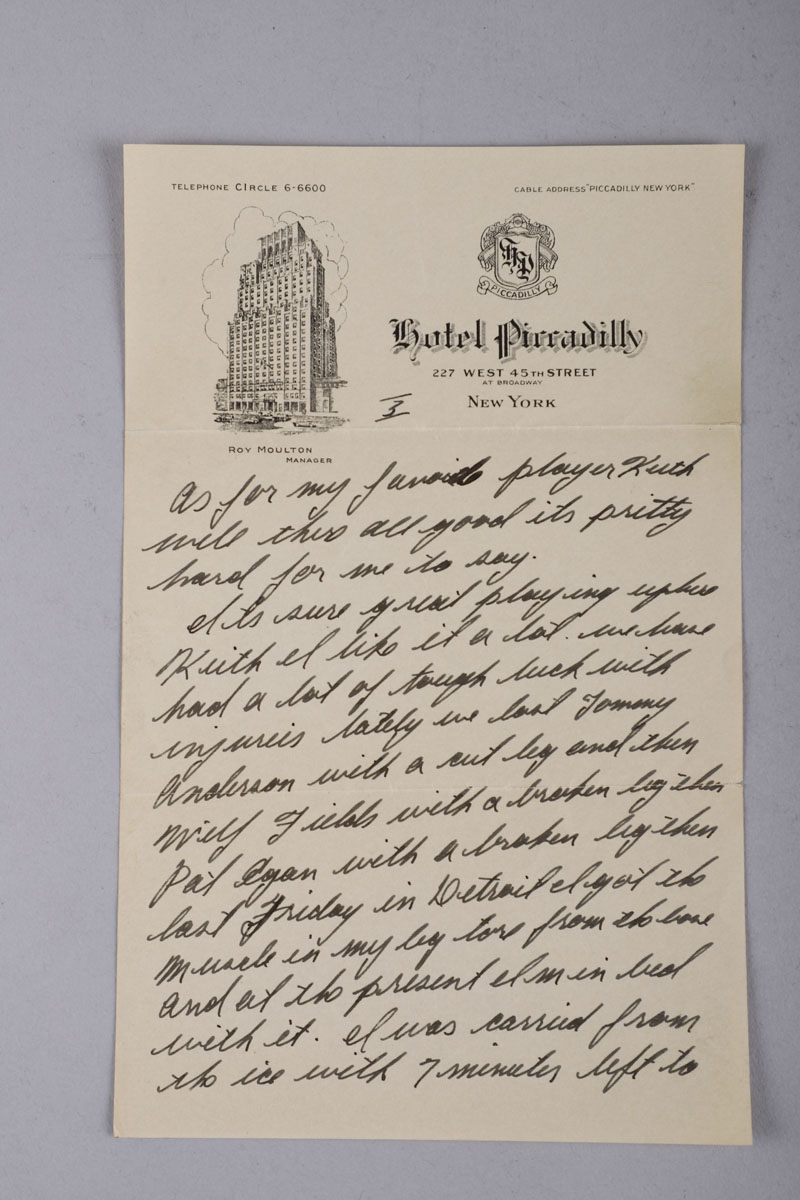 TELEPHONE CIRCLE 6-6600
CABLE ADDRESS "PICCADILLY NEW YORK"
HP
PICCADILLY
Hotel Piccadilly
227 WEST 45TH STREET
AT BROADWAY
NEW YORK
3
ROY MOULTON
MANAGER
As for my favorite player Keith
well there all good its pritty
hard for me to say.
Its sure great playing uphere
Keith I like it a lot. we have
had a lot of tough luck with
injureis lately we lost Tommy
Anderson with a cut leg and then
Wilf Fields with a broken leg then
Pat Egan with a broken leg then
last Friday in Detroit I got the
muscle in my leg tore from the bone
and at the present I'm in bed
with it. I was carried from
the ice with 7 minutes left to